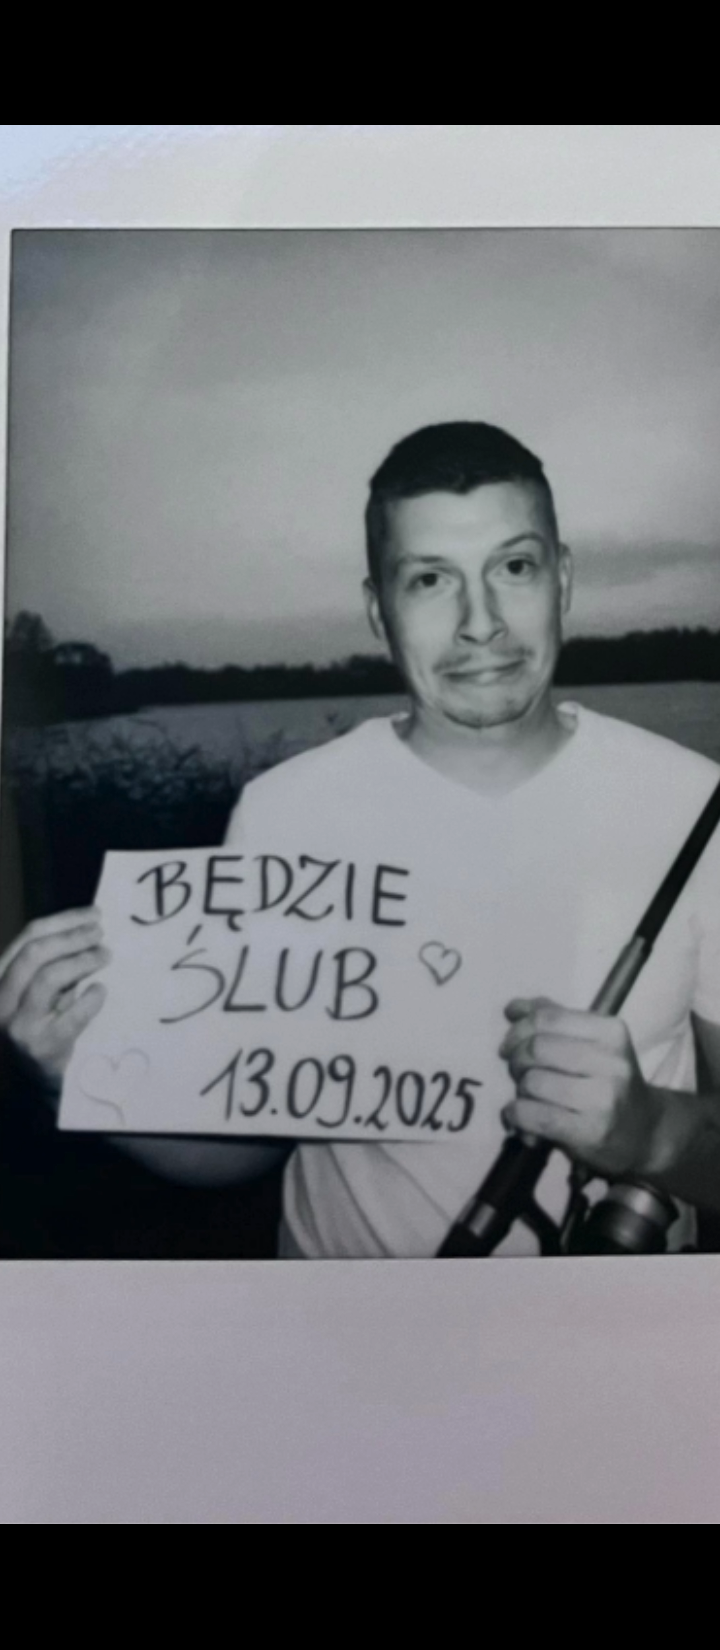 BĘDZIE
ŚLUB
13.09.2025